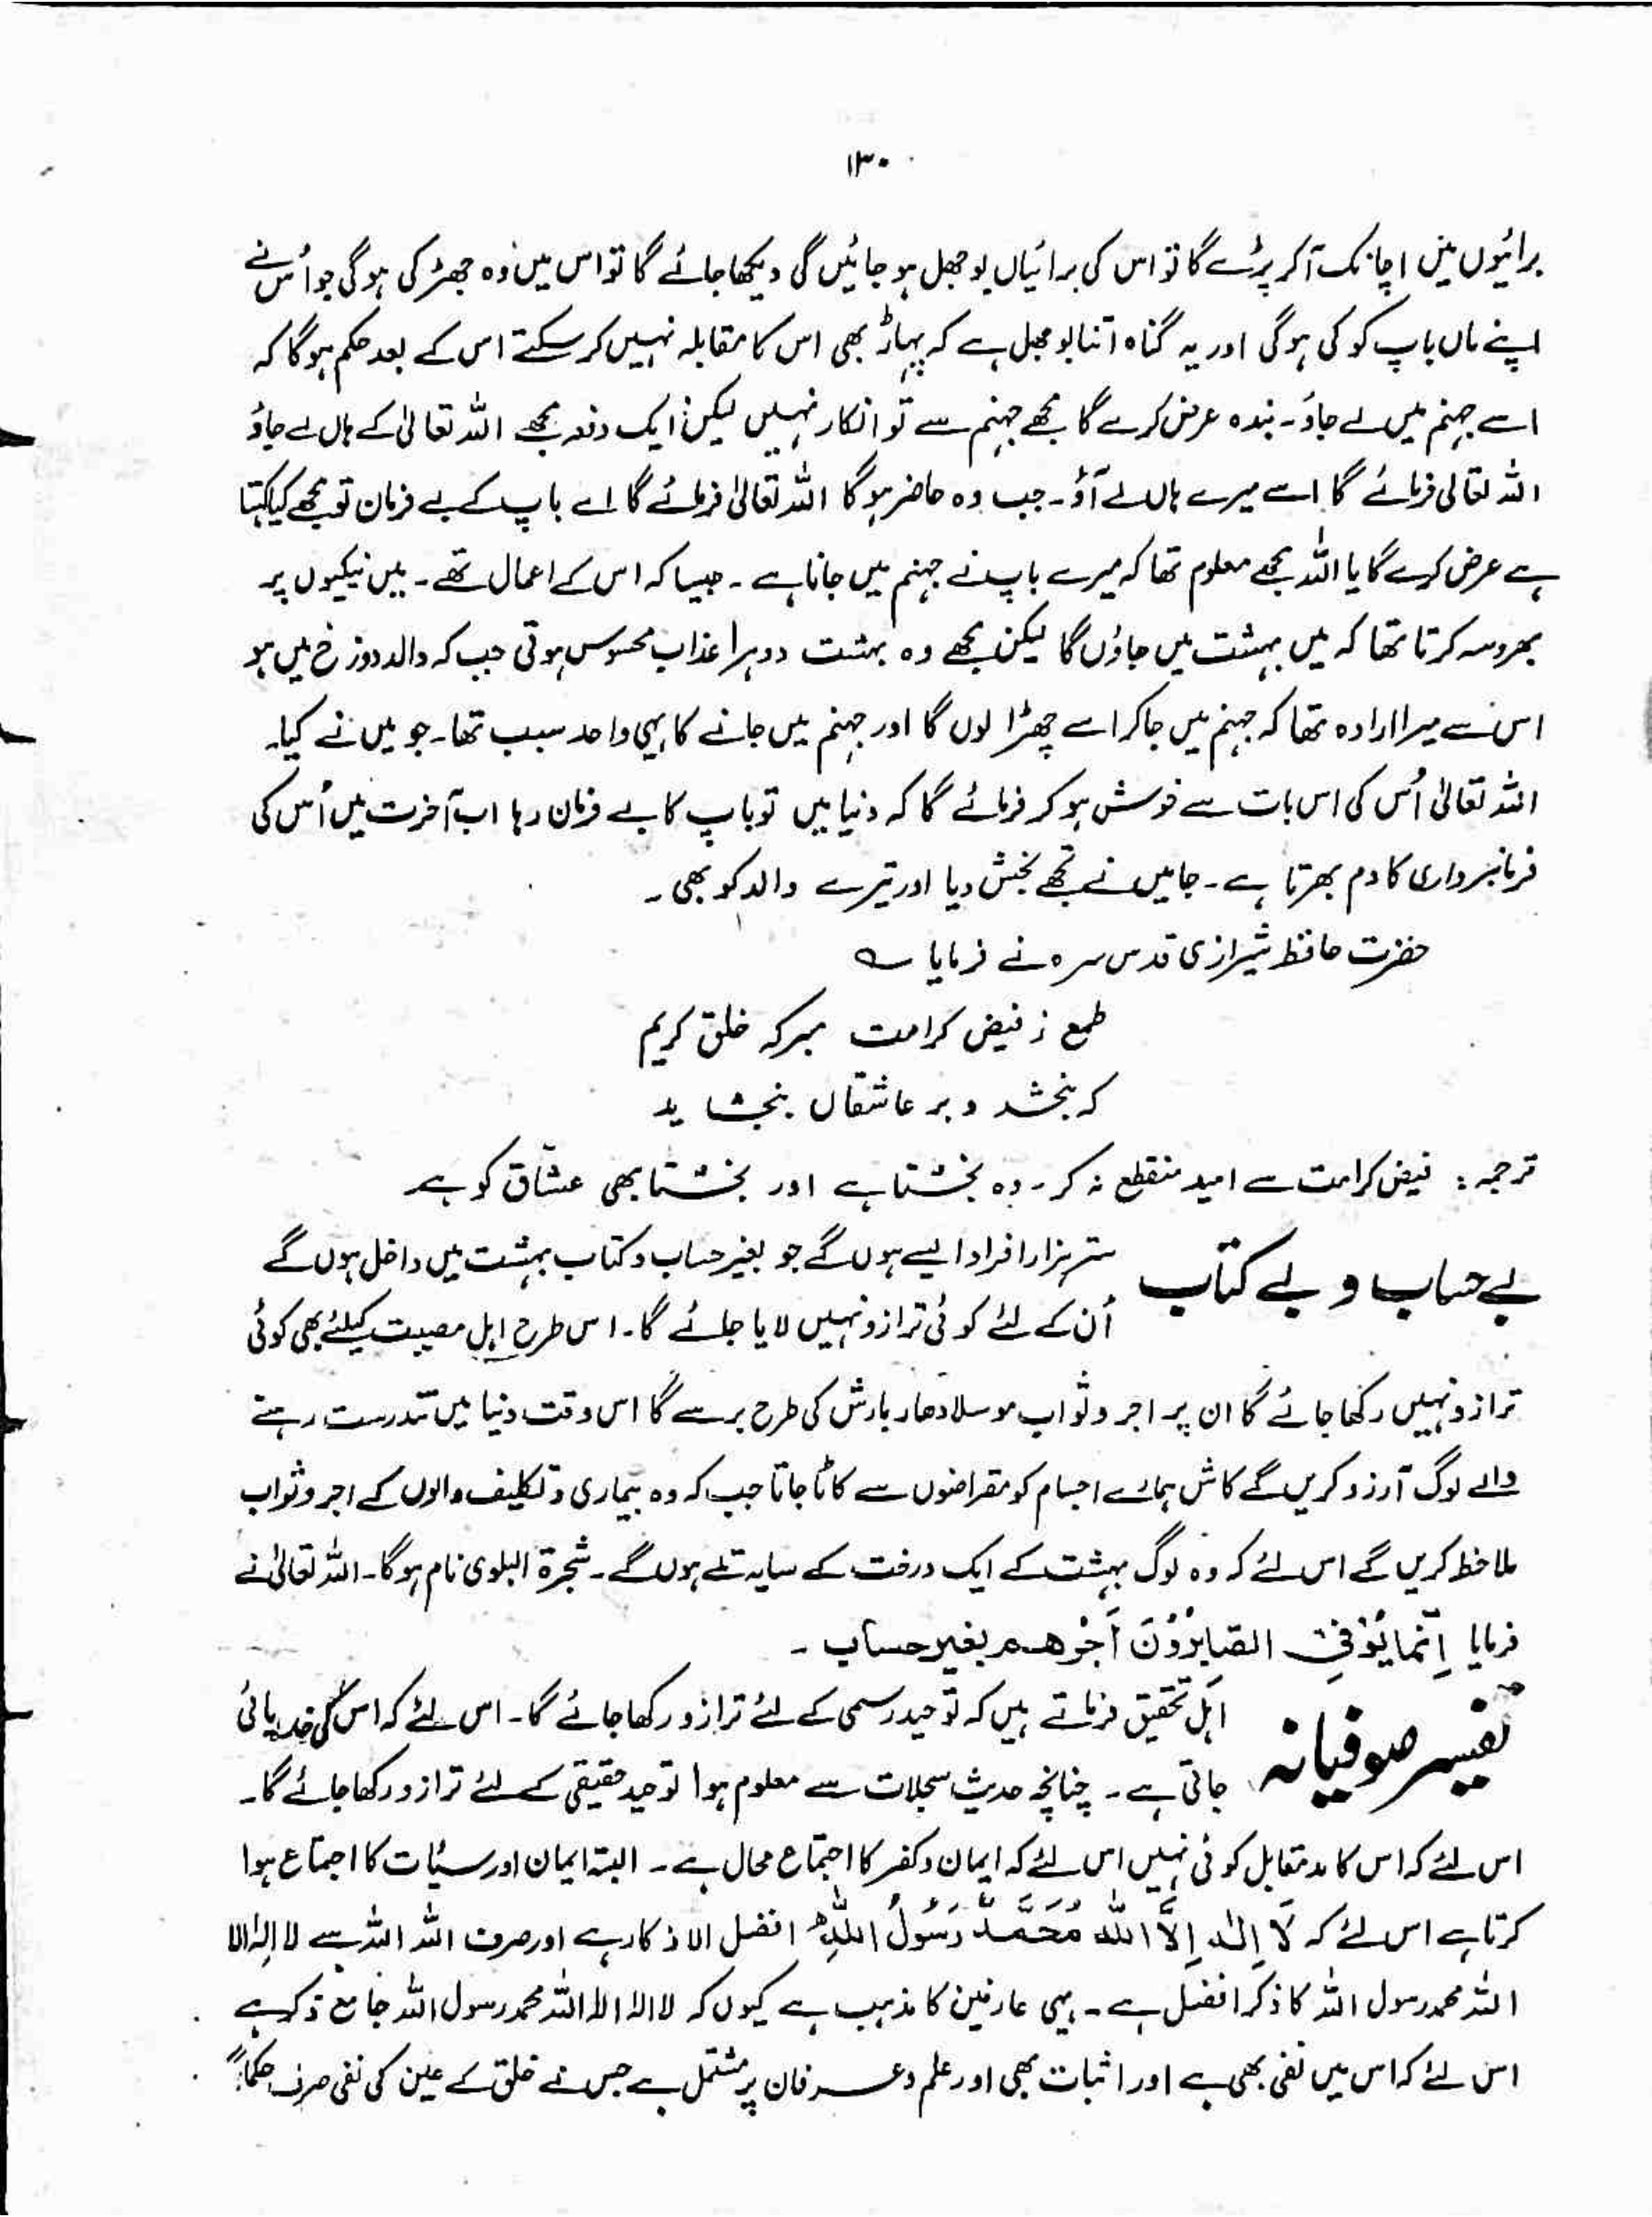 ۱۳۰
برائیوں میں اچانک آ کر پڑے گا تو اس کی برائیاں بوجھل ہو جائیں گی دیکھا جائے گا تو اس میں وہ جھڑکی ہو گی جو اُس نے
اپنے ماں باپ کو کی ہو گی اور یہ گناہ اتنا بوجھل ہے کہ پہاڑ بھی اس کا مقابلہ نہیں کر سکتے اس کے بعد حکم ہو گا کہ
اسے جہنم میں لے جاؤ۔ بندہ عرض کرے گا مجھے جہنم سے تو انکار نہیں لیکن ایک دفعہ مجھے اللہ تعالیٰ کے ہاں لے جاؤ
اللہ تعالیٰ فرمائے گا اسے میرے ہاں لے آؤ۔ جب وہ حاضر ہو گا اللہ تعالیٰ فرمائے گا اے باپ کے بے فرمان تو مجھے کیا کہتا
ہے عرض کرے گا یا اللہ مجھے معلوم تھا کہ میرے باپ نے جہنم میں جانا ہے۔ جیسا کہ اس کے اعمال تھے۔ میں نیکیوں پر
بھروسہ کرتا تھا کہ میں بہشت میں جاؤں گا لیکن مجھے وہ بہشت دوہرا عذاب محسوس ہوتی جب کہ والد دوزخ میں ہو
اس سے میرا ارادہ تھا کہ جہنم میں جا کر اسے چھڑا لوں گا اور جہنم میں جانے کا یہی واحد سبب تھا۔ جو میں نے کیا۔
اللہ تعالیٰ اُس کی اس بات سے خوش ہو کر فرمائے گا کہ دنیا میں تو باپ کا بے فرمان رہا اب آخرت میں اُس کی
فرمانبرداری کا دم بھرتا ہے۔ جا میں نے تجھے بخش دیا اور تیرے والد کو بھی۔
حضرت حافظ شیرازی قدس سرہ نے فرمایا ؎
طمع ز فیض کرامت مبر کہ خلق کریم
کہ بخشد و بر عاشقاں بخشاید
ترجمہ: فیض کرامت سے امید منقطع نہ کر۔ وہ بخشتا ہے اور بخشتا بھی عشّاق کو ہے
بے حساب و بے کتاب
ستر ہزار افراد ایسے ہوں گے جو بغیر حساب و کتاب بہشت میں داخل ہوں گے
اُن کے لئے کوئی ترازو نہیں لایا جائے گا۔ اس طرح اہل مصیبت کیلئے بھی کوئی
ترازو نہیں رکھا جائے گا ان پر اجر و ثواب موسلا دھار بارش کی طرح برسے گا اس وقت دنیا میں تندرست رہنے
والے لوگ آرزو کریں گے کاش ہمارے اجسام کو مقراضوں سے کاٹا جاتا جب کہ وہ بیماری و تکلیف والوں کے اجر و ثواب
ملاحظہ کریں گے اس لئے کہ وہ لوگ بہشت کے ایک درخت کے سایہ تلے ہوں گے۔ شجرۃ البلوی نام ہو گا۔ اللہ تعالیٰ نے
فرمایا إِنَّمَا یُوَفَّی الصَّابِرُوْنَ اَجْرَهم بغیر حساب۔
تفسیر صوفیانہ
اہل تحقیق فرماتے ہیں کہ توحید رسمی کے لئے ترازو رکھا جائے گا۔ اس لئے کہ اس کی ضد پائی
جاتی ہے۔ چنانچہ حدیث سجلات سے معلوم ہوا توحید حقیقی کے لئے ترازو رکھا جائے گا۔
اس لئے کہ اس کا مد مقابل کوئی نہیں اس لئے کہ ایمان و کفر کا اجتماع محال ہے۔ البتہ ایمان اور سیئات کا اجتماع ہوا
کرتا ہے اس لئے کہ لَا اِلٰهَ اِلَّا اللهُ مُحَمَّدٌ رَسُوْلُ اللهِ افضل الاذکار ہے اور صرف اللہ اللہ سے لا الٰہ الا
اللہ محمد رسول اللہ کا ذکر افضل ہے۔ یہی عارفین کا مذہب ہے کیوں کہ لا الہ الا اللہ محمد رسول اللہ جامع ذکر ہے
اس لئے کہ اس میں نفی بھی ہے اور اثبات بھی اور علم و عرفان پر مشتمل ہے جس نے خلق کے عین کی نفی صرف حکماً